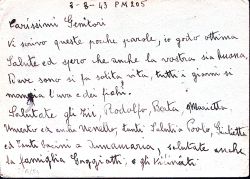 3-8-43 PM 205
Carissimi Genitori
Vi scrivo queste poche parole, io godo ottima
Salute ed spero che anche la vostra sia buona,
si fa solita vita, tutti i giorni si
mangia l'uva e dei fichi.
Salutate gli Zii, Rodolfo, Berta Marietta
ed anche tanti Saluti a Paolo, Giulietta
ed tanti bacini a Annamaria, salutate anche
la famiglia Gaggiatti e gli Vicinati